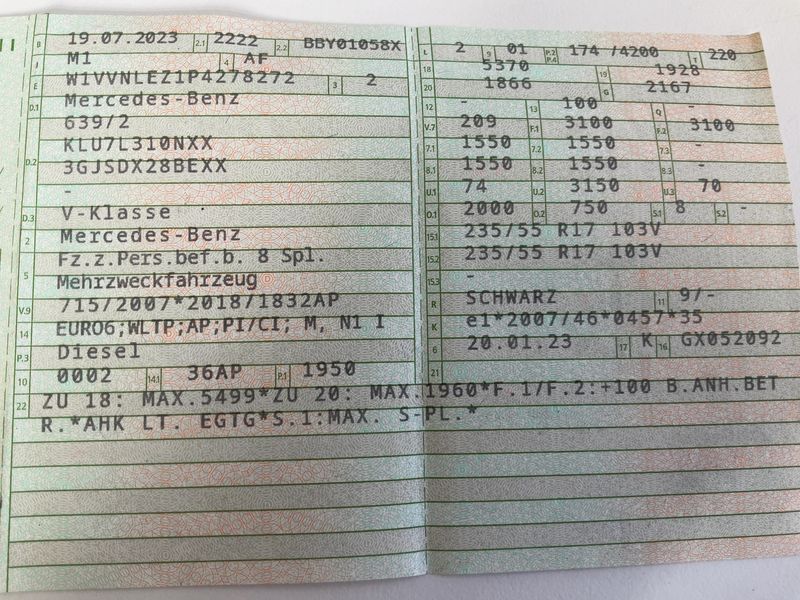 B 19.07.2023 2.1 2222 2.2 BBY01058X
J M1 4 AF
E W1VVNLEZ1P4278272 3 2
D.1 Mercedes-Benz
639/2
D.2 KLU7L310NXX
3GJSDX28BEXX
-
D.3 V-Klasse
2 Mercedes-Benz
5 Fz.z.Pers.bef.b. 8 Spl.
Mehrzweckfahrzeug
V.9 715/2007*2018/1832AP
14 EURO6;WLTP;AP;PI/CI; M, N1 I
P.3 Diesel
10 0002 14.1 36AP P.1 1950
L 2 9 01 P.2 P.4 174 /4200 T 220
18 5370 19 1928
20 1866 G 2167
12 - 13 100 Q -
V.7 209 F.1 3100 F.2 3100
7.1 1550 7.2 1550 7.3 -
8.1 1550 8.2 1550 8.3 -
U.1 74 U.2 3150 U.3 70
O.1 2000 O.2 750 S.1 8 S.2 -
15.1 235/55 R17 103V
15.2 235/55 R17 103V
15.3 -
R SCHWARZ 11 9/-
K e1*2007/46*0457*35
6 20.01.23 17 K 16 GX052092
21
22 ZU 18: MAX.5499*ZU 20: MAX.1960*F.1/F.2:+100 B.ANH.BET
R.*AHK LT. EGTG*S.1:MAX. S-PL.*